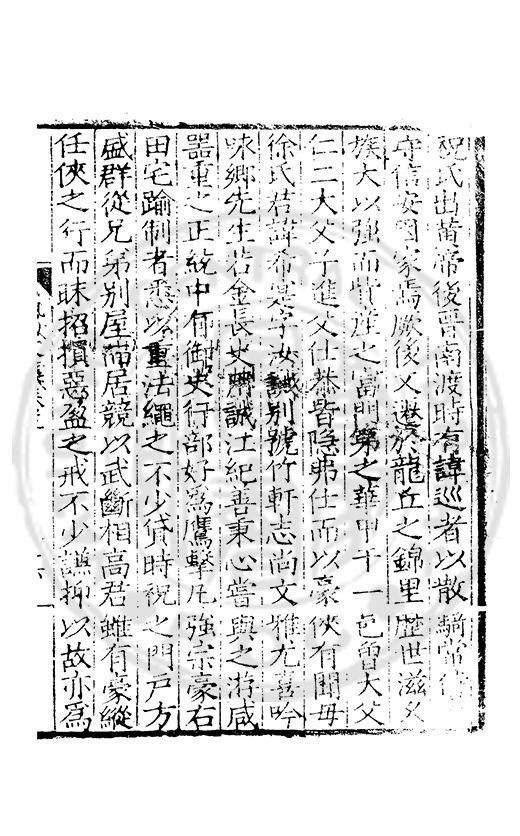 祝氏出黃帝後晋南渡時有諱巡者以散騎常侍
守信安因家焉厥後又遷於龍丘之錦里歷世滋久
族大以強而貲產之富門第之華甲于一邑曾大父
仁二大父子進父仕恭皆隱弗仕而以豪俠有聞母
徐氏君諱希寔字汝誠別號竹軒志尚文雅尤喜吟
咏鄉先生若金長史 誠汪紀善秉心嘗與之游咸
器重之正統中有御史行部好爲鷹擊凡強宗豪右
田宅踰制者悉以重法繩之不少貸時祝之門戶方
盛群從兄弟別屋而居競以武斷相高君雖有豪縱
任俠之行而昧招損惡盈之戒不少謙抑以故亦爲